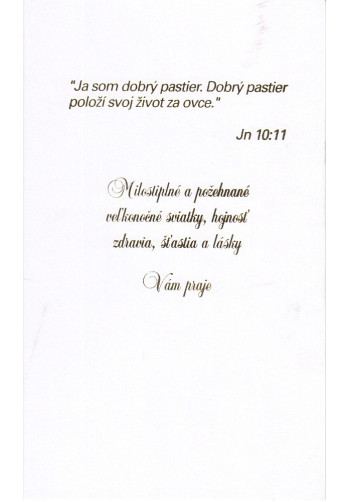 "Ja som dobrý pastier. Dobrý pastier
položí svoj život za ovce."
Jn 10:11
Milostiplné a požehnané
veľkonočné sviatky, hojnosť
zdravia, šťastia a lásky
Vám praje